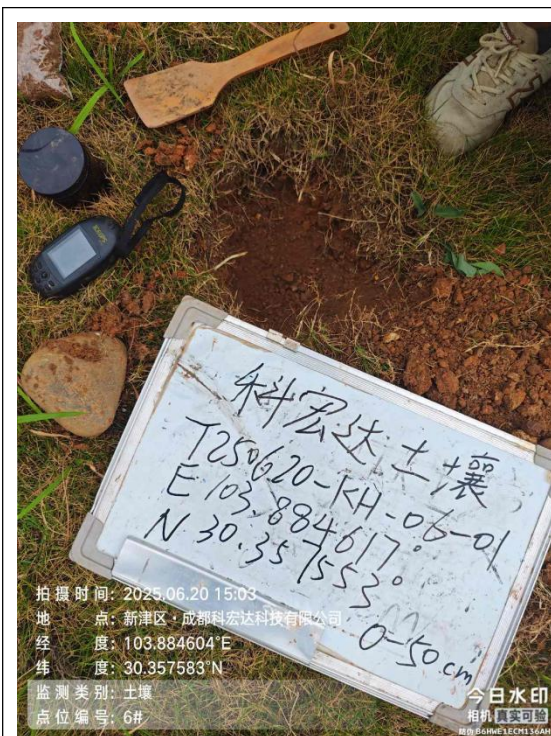 科宏达土壤
T250620-KH-06-01
E 103.884617°
N 30.357553°
0-50cm
拍摄时间: 2025.06.20 15:03
地 点: 新津区·成都科宏达科技有限公司
经 度: 103.884604°E
纬 度: 30.357583°N
监测类别: 土壤
点位编号: 6#
今日水印
相机 真实可验
防伪 B6HWE1ECM136AH